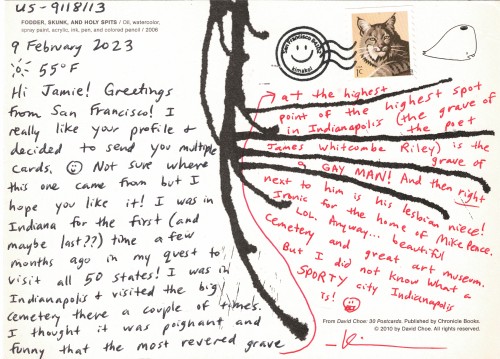 US-9118113
FODDER, SKUNK, AND HOLY SPITS / Oil, watercolor,
spray paint, acrylic, ink, pen, and colored pencil / 2008
9 February 2023
55°F
Hi Jamie! Greetings
from San Francisco! I
really like your profile &
decided to send you multiple
cards. Not sure where
this one came from but I
hope you like it! I was in
Indiana for the first (and
maybe last??) time a few
months ago in my quest to
visit all 50 states! I was in
Indianapolis & visited the big
cemetery there a couple of times.
I thought it was poignant and
funny that the most revered grave
San Francisco
1c
at the highest
point of the highest spot
in Indianapolis (the grave of
the poet
James Whitcombe Riley) is the
grave of
a GAY MAN! And then right
next to him is his lesbian niece!
Ironic for the home of Mike Pence.
LOL. Anyway... beautiful
cemetery and great art museum.
But I did not know what a
SPORTY city Indianapolis
is!
From David Choe: 30 Postcards. Published by Chronicle Books.
© 2010 by David Choe. All rights reserved.